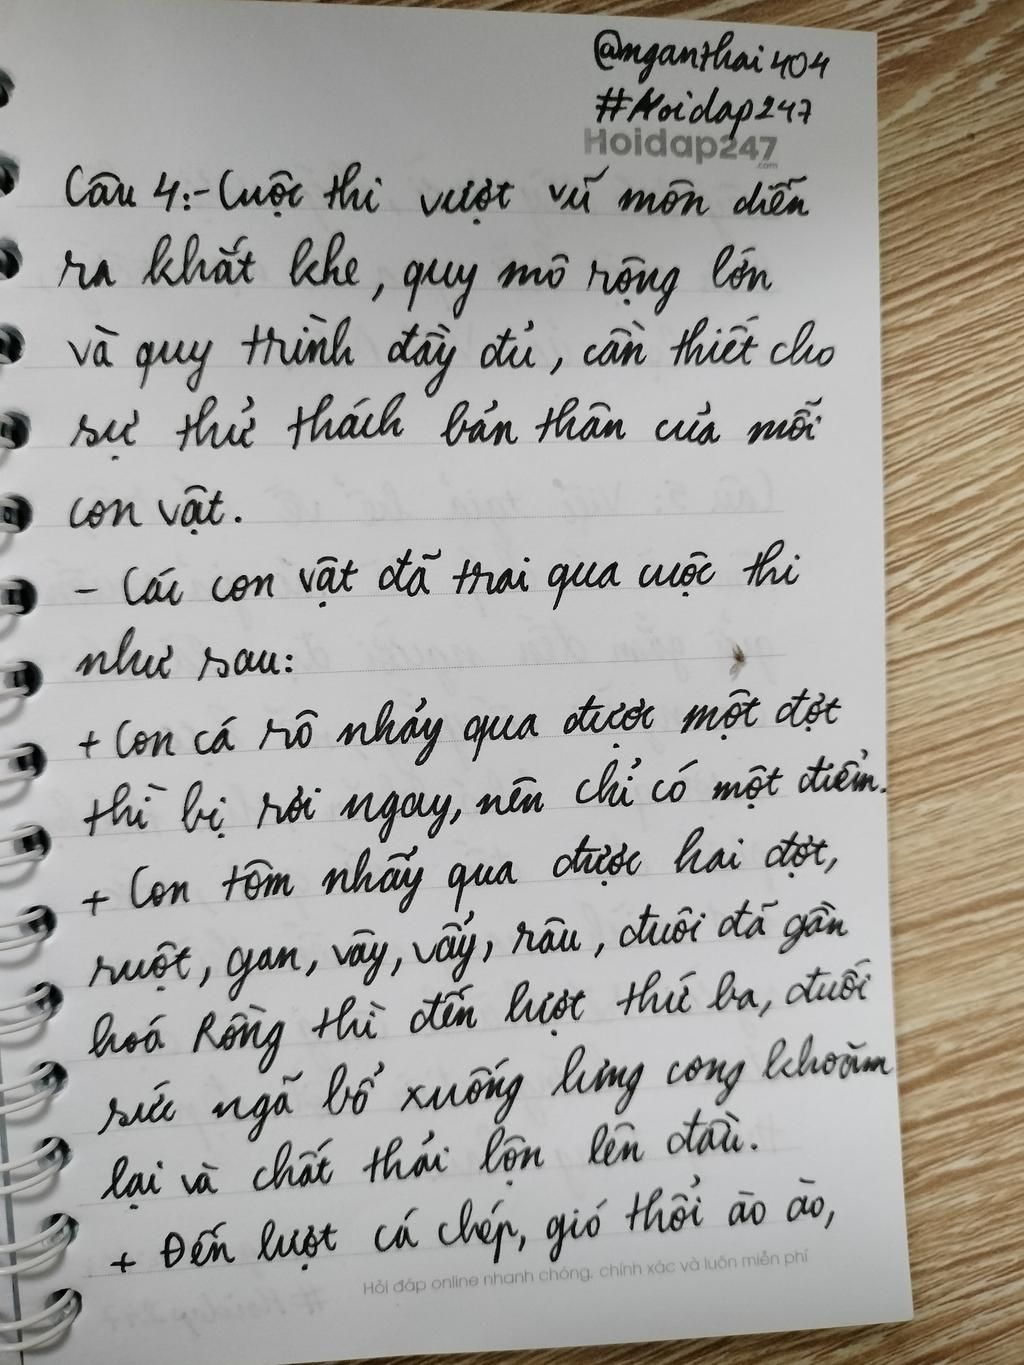 @nganthai404
#Hoidap247
Hoidap247
.com
Câu 4:- Cuộc thi vượt vũ môn diễn
ra khắt khe, quy mô rộng lớn
và quy trình đầy đủ, cần thiết cho
sự thử thách bản thân của mỗi
con vật.
- Các con vật đã trai qua cuộc thi
như sau:
+ Con cá rô nhảy qua được một đợt
thì bị rơi ngay, nên chỉ có một điểm.
+ Con tôm nhảy qua được hai đợt,
ruột, gan, vây, vẩy, râu, đuôi đã gần
hoá Rồng thì đến lượt thứ ba, đuối
sức ngã bổ xuống lưng cong khoăm
lại và chất thải lộn lên đầu.
+ Đến lượt cá chép, gió thổi ào ào,
Hỏi đáp online nhanh chóng, chính xác và luôn miễn phí